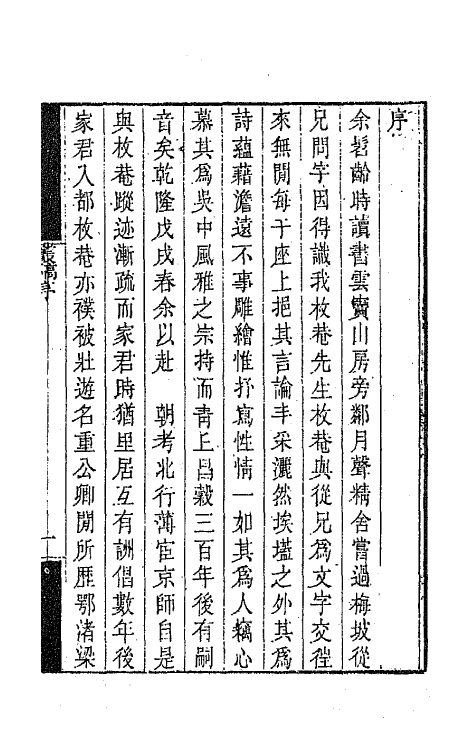 序
余髫齡時讀書雲寶山房旁鄰月聲精舍嘗過梅坡從
兄問字因得識我枚菴先生枚菴與從兄爲文字交徃
來無閒每于座上挹其言論丰采灑然埃壒之外其爲
詩蘊藉澹遠不事雕繪惟抒寫性情一如其爲人竊心
慕其爲吳中風雅之宗持而靑上昌穀三百年後有嗣
音矣乾隆戊戌春余以赴　朝考北行薄宦京師自是
與枚菴蹤迹漸疏而家君時猶里居互有詶倡數年後
家君入都枚菴亦襆被壯遊名重公卿閒所歷鄂渚梁
叢稿序
一